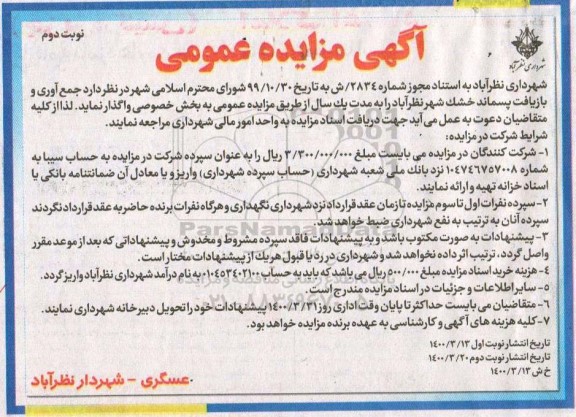 نوبت دوم
آگهی مزایده عمومی
شهرداری نظرآباد
شهرداری نظرآباد به استناد مجوز شماره ۲۸۳۴/ش به تاریخ ۹۹/۱۰/۳۰ شورای محترم اسلامی شهر در نظر دارد جمع آوری و
بازیافت پسماند خشك شهر نظرآباد را به مدت یك سال از طریق مزایده عمومی به بخش خصوصی واگذار نماید. لذا از کلیه
متقاضیان دعوت به عمل می آید جهت دریافت اسناد مزایده به واحد امور مالی شهرداری مراجعه نمایند.
شرایط شرکت در مزایده:
۱- شرکت کنندگان در مزایده می بایست مبلغ ۳/۳۰۰/۰۰۰/۰۰۰ ریال را به عنوان سپرده شرکت در مزایده به حساب سیبا به
شماره ۰۱۰۴۷۴۶۷۵۷۰۰۸ نزد بانك ملی شعبه شهرداری (حساب سپرده شهرداری) واریز و یا معادل آن ضمانتنامه بانکی یا
اسناد خزانه تهیه و ارائه نمایند.
۲- سپرده نفرات اول تا سوم مزایده تا زمان عقد قرارداد نزد شهرداری نگهداری و هرگاه نفرات برنده حاضر به عقد قرارداد نگردند
سپرده آنان به ترتیب به نفع شهرداری ضبط خواهد شد.
۳- پیشنهادات به صورت مکتوب باشد و به پیشنهادات فاقد سپرده مشروط و مخدوش و پیشنهاداتی که بعد از موعد مقرر
واصل گردد، ترتیب اثر داده نخواهد شد و شهرداری در رد یا قبول هر یك از پیشنهادات مختار است.
۴- هزینه خرید اسناد مزایده مبلغ ۵۰۰/۰۰۰ ریال می باشد که باید به حساب ۰۱۰۴۵۳۴۰۲۱۰۰ به نام درآمد شهرداری نظرآباد واریز گردد.
۵- سایر اطلاعات و جزئیات در اسناد مزایده مندرج است.
۶- متقاضیان می بایست حداکثر تا پایان وقت اداری روز ۱۴۰۰/۳/۳۱ پیشنهادات خود را تحویل دبیرخانه شهرداری نمایند.
۷- کلیه هزینه های آگهی و کارشناسی به عهده برنده مزایده خواهد بود.
تاریخ انتشار نوبت اول ۱۴۰۰/۳/۱۳
تاریخ انتشار نوبت دوم ۱۴۰۰/۳/۲۰
خ ش ۱۴۰۰/۳/۱۳
عسگری - شهردار نظرآباد